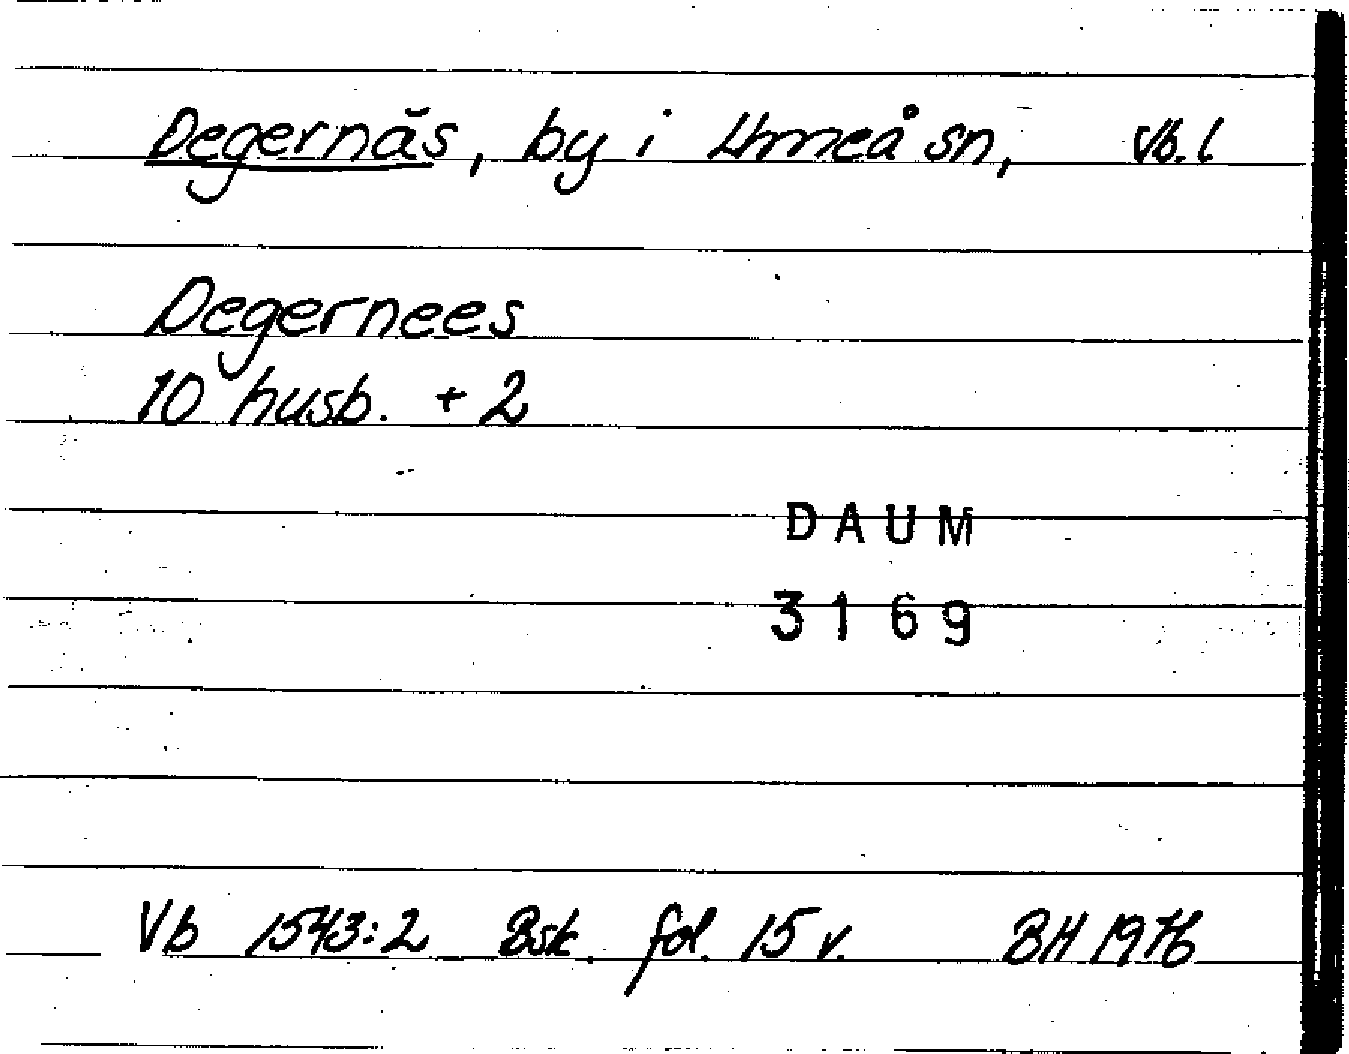 Degernäs, by i Umeå sn, Vb. l
Degernees
10 husb. + 2
DAUM
3169
Vb 1543:2 Bsk. fol. 15 v. BH 1976